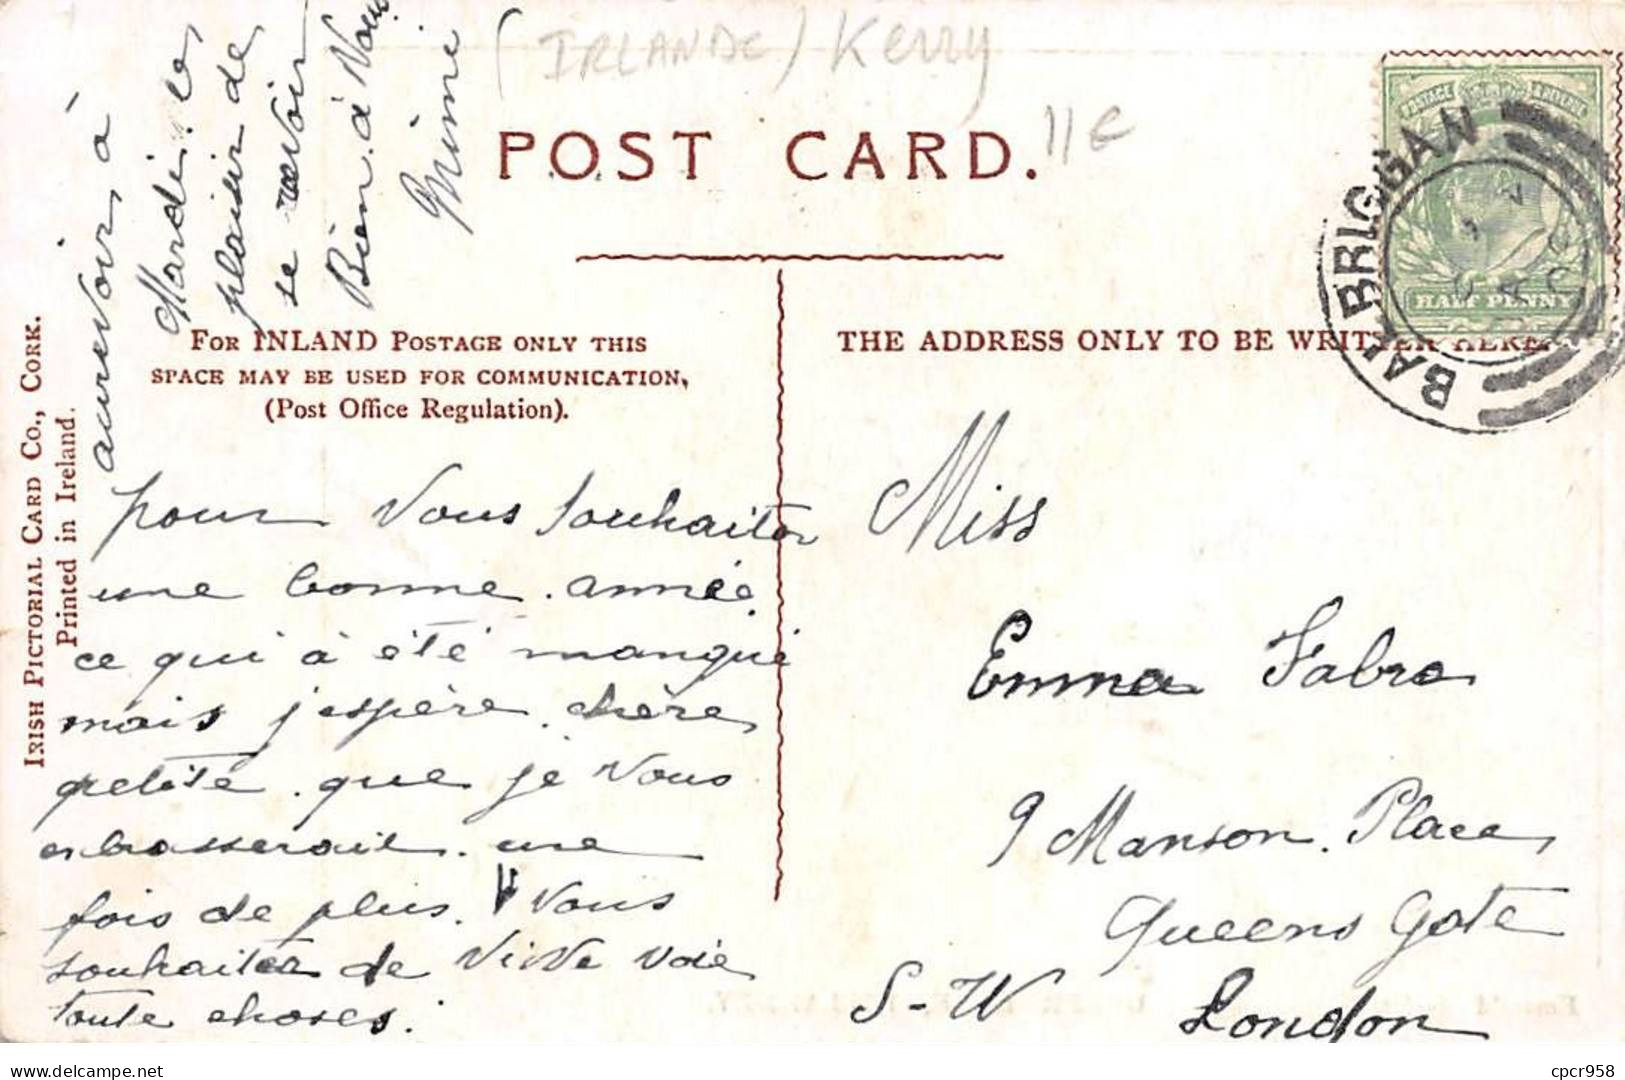 (IRLANDE) Kerry
11€
POST CARD.
BALBRIGGAN
POSTAGE
HALF PENNY
FOR INLAND POSTAGE ONLY THIS
SPACE MAY BE USED FOR COMMUNICATION,
(Post Office Regulation).
THE ADDRESS ONLY TO BE WRITTEN HERE
IRISH PICTORIAL CARD CO., CORK.
Printed in Ireland.
pour vous souhaiter
une bonne année
ce qui à été manqué
mais j'espère chère
petite que je vous
embrasserait une
fois de plus. Vous
souhaiter de vive voie
toute choses.
aurevoir, à
Mardi. le
plaisir de
se revoir
Bien à Vous
Mimi
Miss
Emma Fabre
9 Manson Place
Queens Gate
S-W London
cpcr958